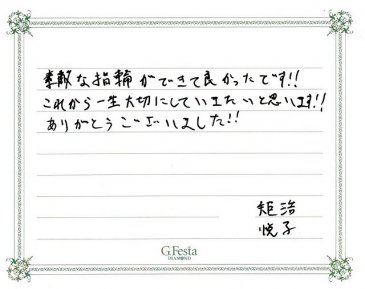 素敵な指輪ができて良かったです!!
これから一生大切にしていきたいと思います!!
ありがとうございました!!
矩浩
悦子
G.Festa
DIAMOND